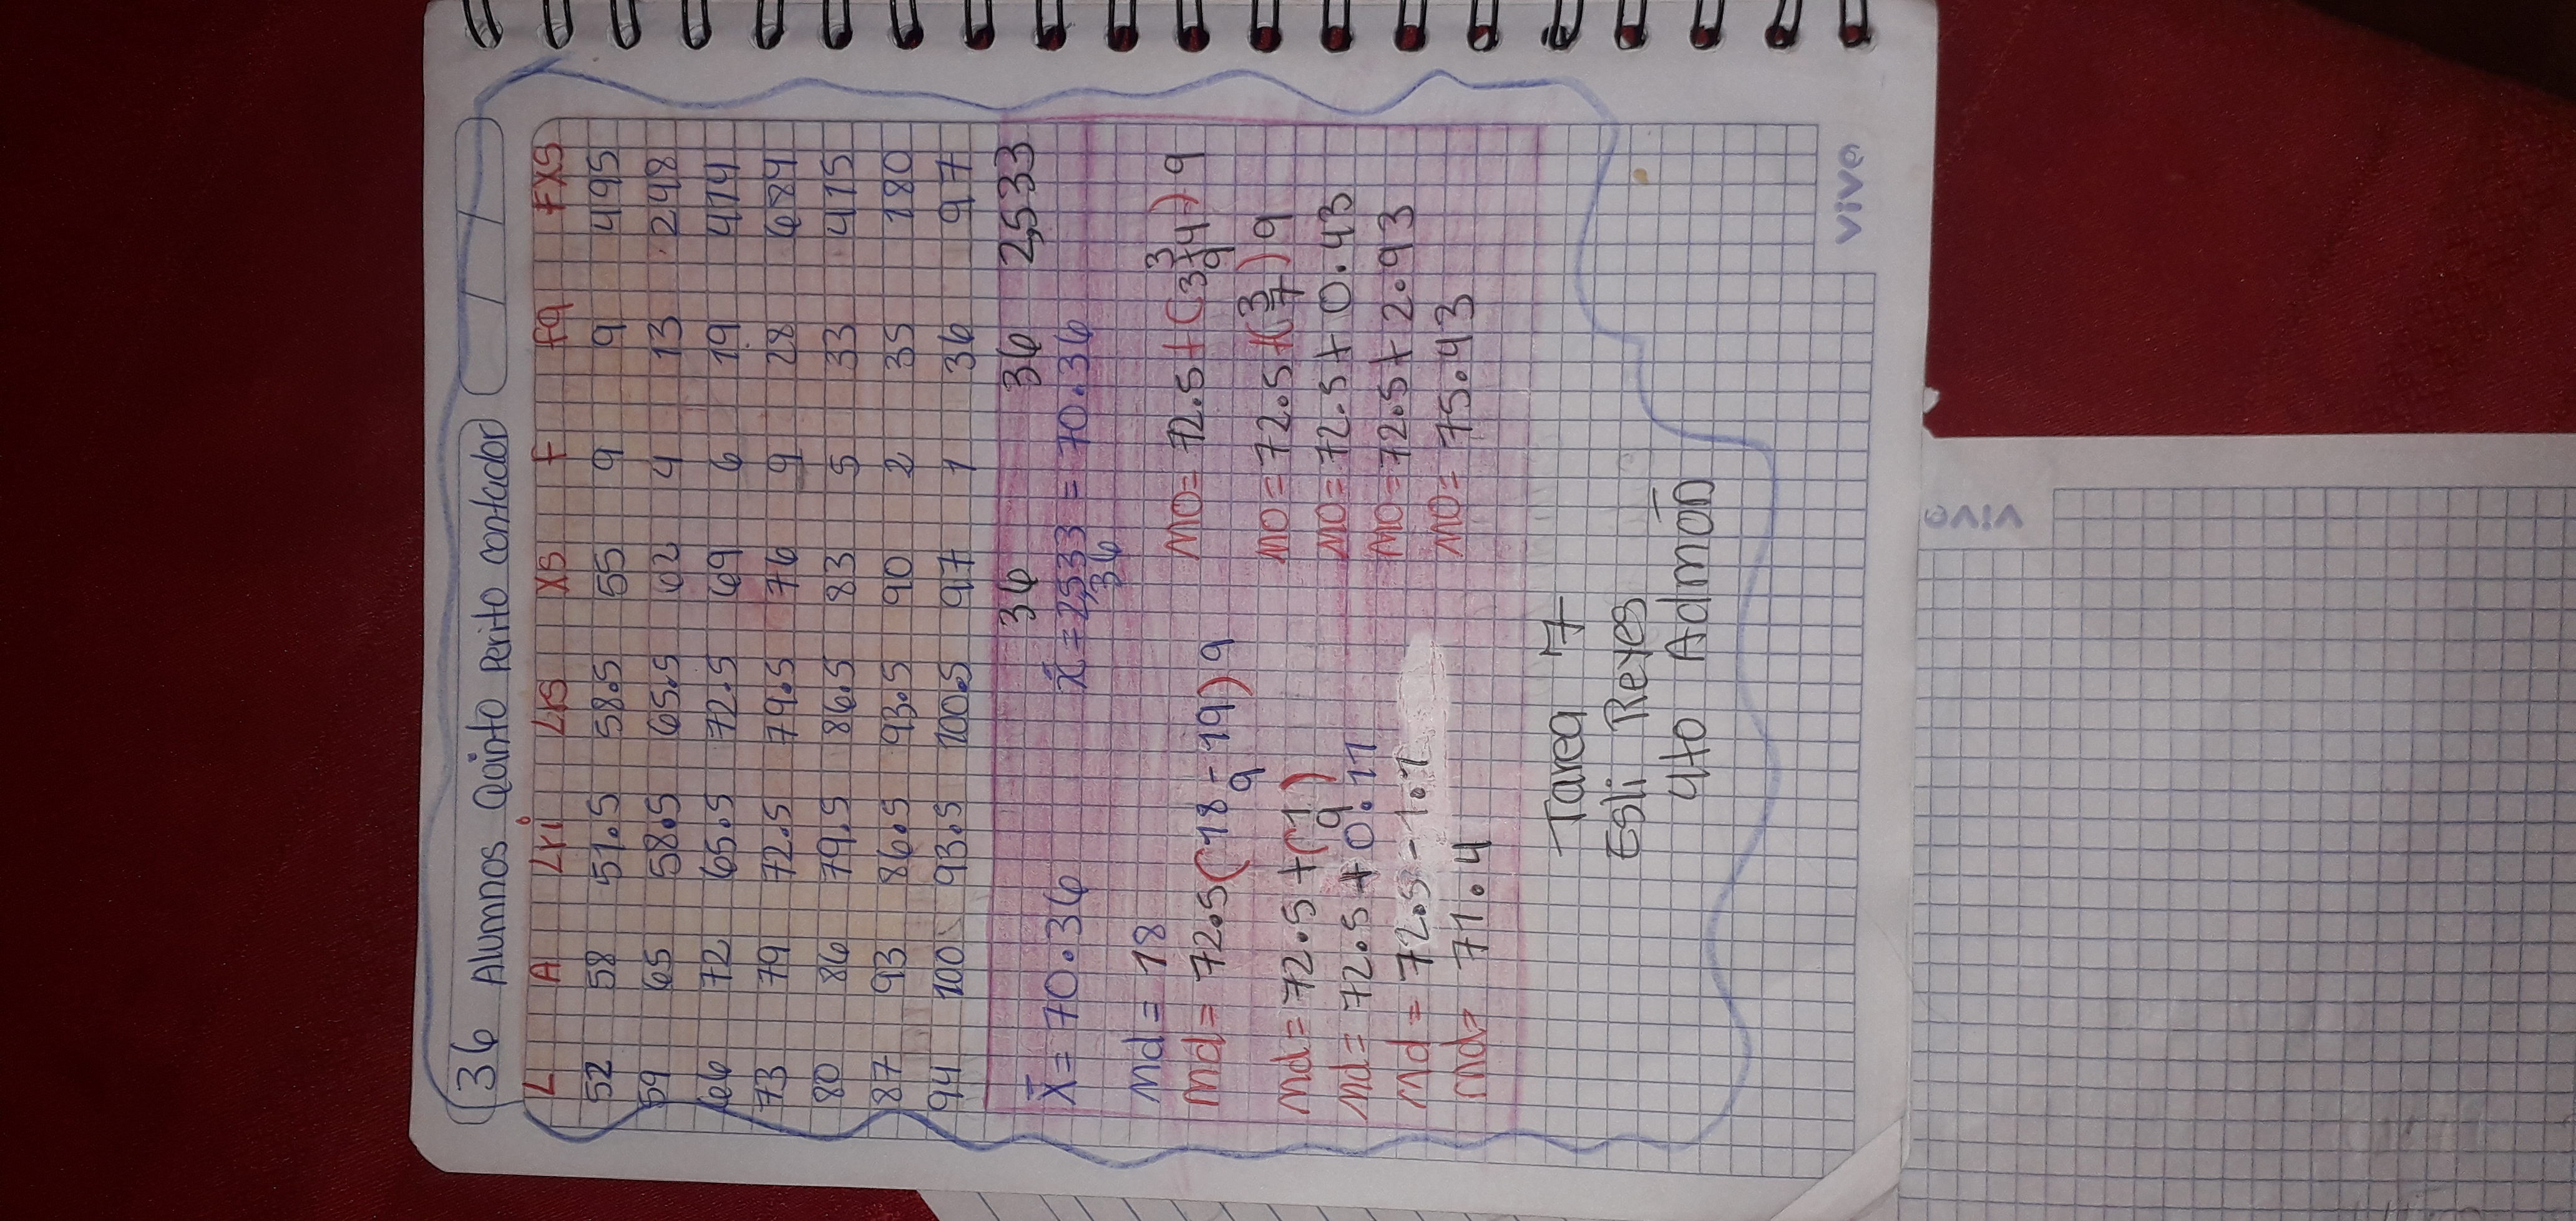 36 Alumnos Quinto Perito contador
L A Lri Lrs Xs F Fa FXS
52 58 51.5 58.5 55 9 9 495
59 65 58.5 65.5 62 4 13 248
66 72 65.5 72.5 69 6 19 414
73 79 72.5 79.5 76 9 28 684
80 86 79.5 86.5 83 5 33 415
87 93 86.5 93.5 90 2 35 180
94 100 93.5 100.5 97 1 36 97
36 36 2,533
X̄ = 70.36 x̄ = 2,533 = 70.36
36
Md = 18
Md = 72.5 (18 - 19) 9
9
Md = 72.5 + (1)
9
Md = 72.5 + 0.11
Md = 72.5 - 1.1
Md = 71.4
MO = 72.5 + (3+4) 9
3
9
MO = 72.5 + (3) 9
7
MO = 72.5 + 0.43
MO = 72.5 + 2.93
MO = 75.43
Tarea 7
Esli Reyes
4to Admón
vivo
vivo